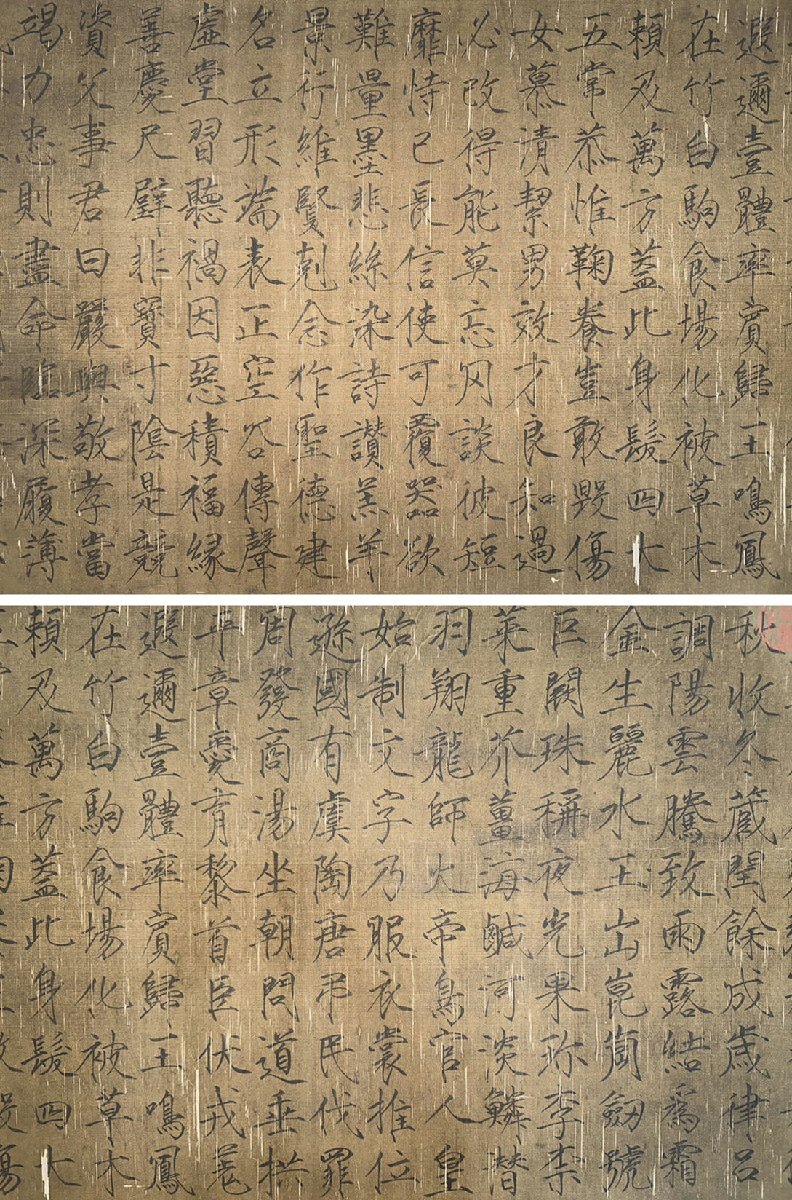 遐邇壹體率賓歸王鳴鳳
在竹白駒食場化被草木
賴及萬方蓋此身髮四大
五常恭惟鞠養豈敢毀傷
女慕清絜男效才良知過
必改得能莫忘罔談彼短
靡恃己長信使可覆器欲
難量墨悲絲染詩讚羔羊
景行維賢剋念作聖德建
名立形端表正空谷傳聲
虛堂習聽禍因惡積福緣
善慶尺璧非寶寸陰是競
資父事君曰嚴與敬孝當
竭力忠則盡命臨深履薄
秋收冬蔵閏餘成歲律呂
調陽雲騰致雨露結為霜
金生麗水玉出崑崗劒號
巨闕珠稱夜光果珍李柰
菜重芥薑海鹹河淡鱗潛
羽翔龍師火帝鳥官人皇
始制文字乃服衣裳推位
遜國有虞陶唐弔民伐罪
周發商湯坐朝問道垂拱
平章愛育黎首臣伏戎羌
遐邇壹體率賓歸王鳴鳳
在竹白駒食場化被草木
賴及萬方蓋此身髮四大